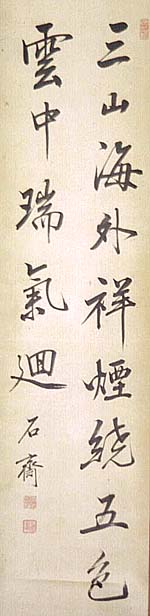 三山海外祥煙繞五色
雲中瑞氣迴
石齋